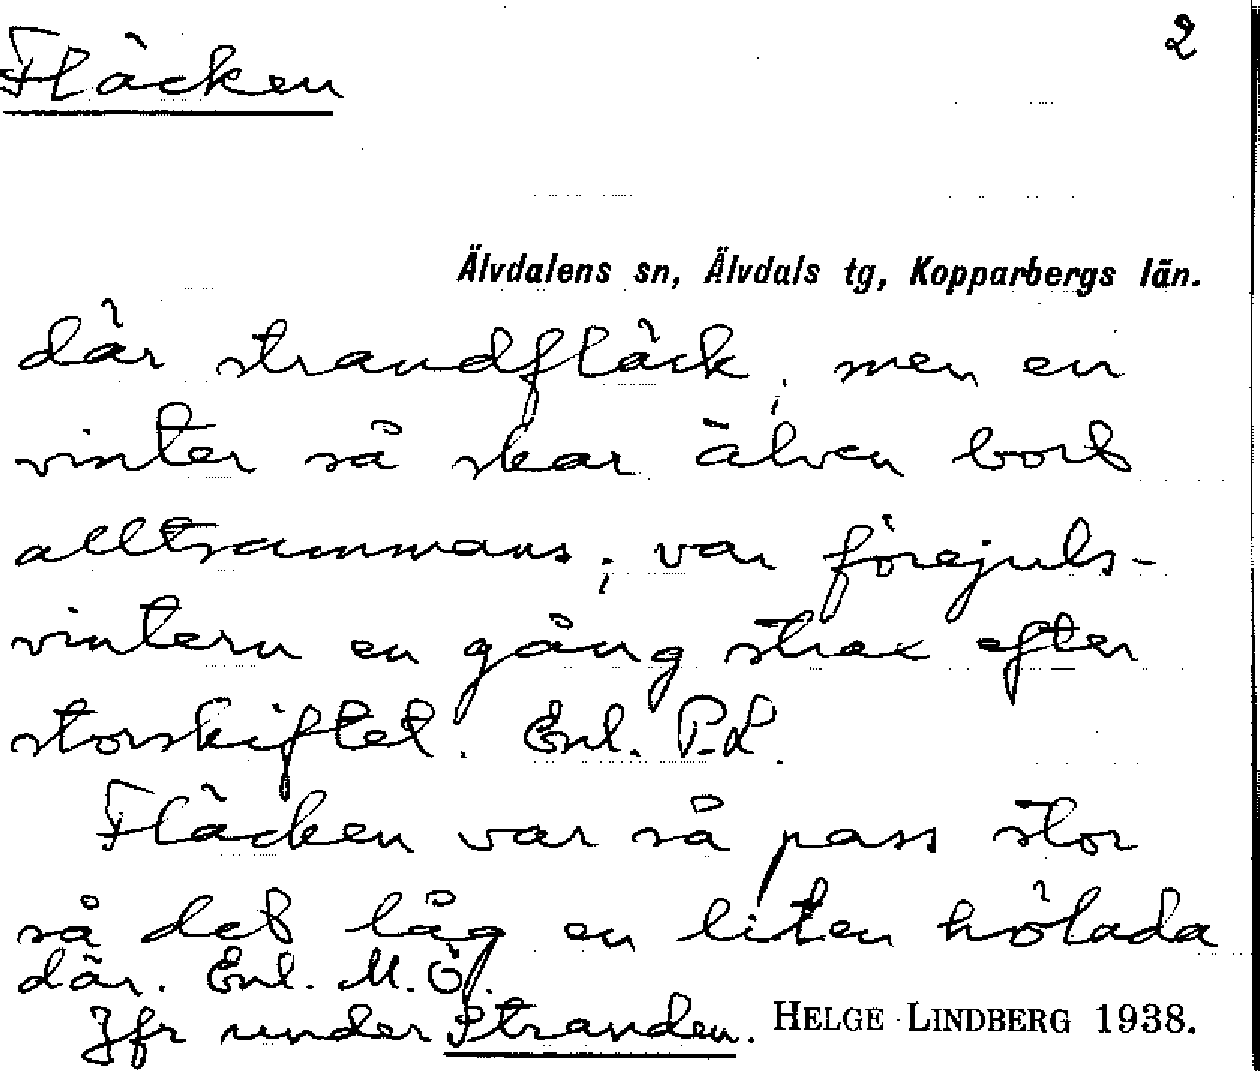 Fläcken
2
Älvdalens sn, Älvdals tg, Kopparbergs län.
där strandfläck, men en
vinter så skar älven bort
alltsammans; var förejuls-
vintern en gång strax efter
storskiftet. Enl. P.L.
Fläcken var så pass stor
så det låg en liten hölada
där. Enl. M. Ö.
Jfr under Stranden.
HELGE LINDBERG 1938.